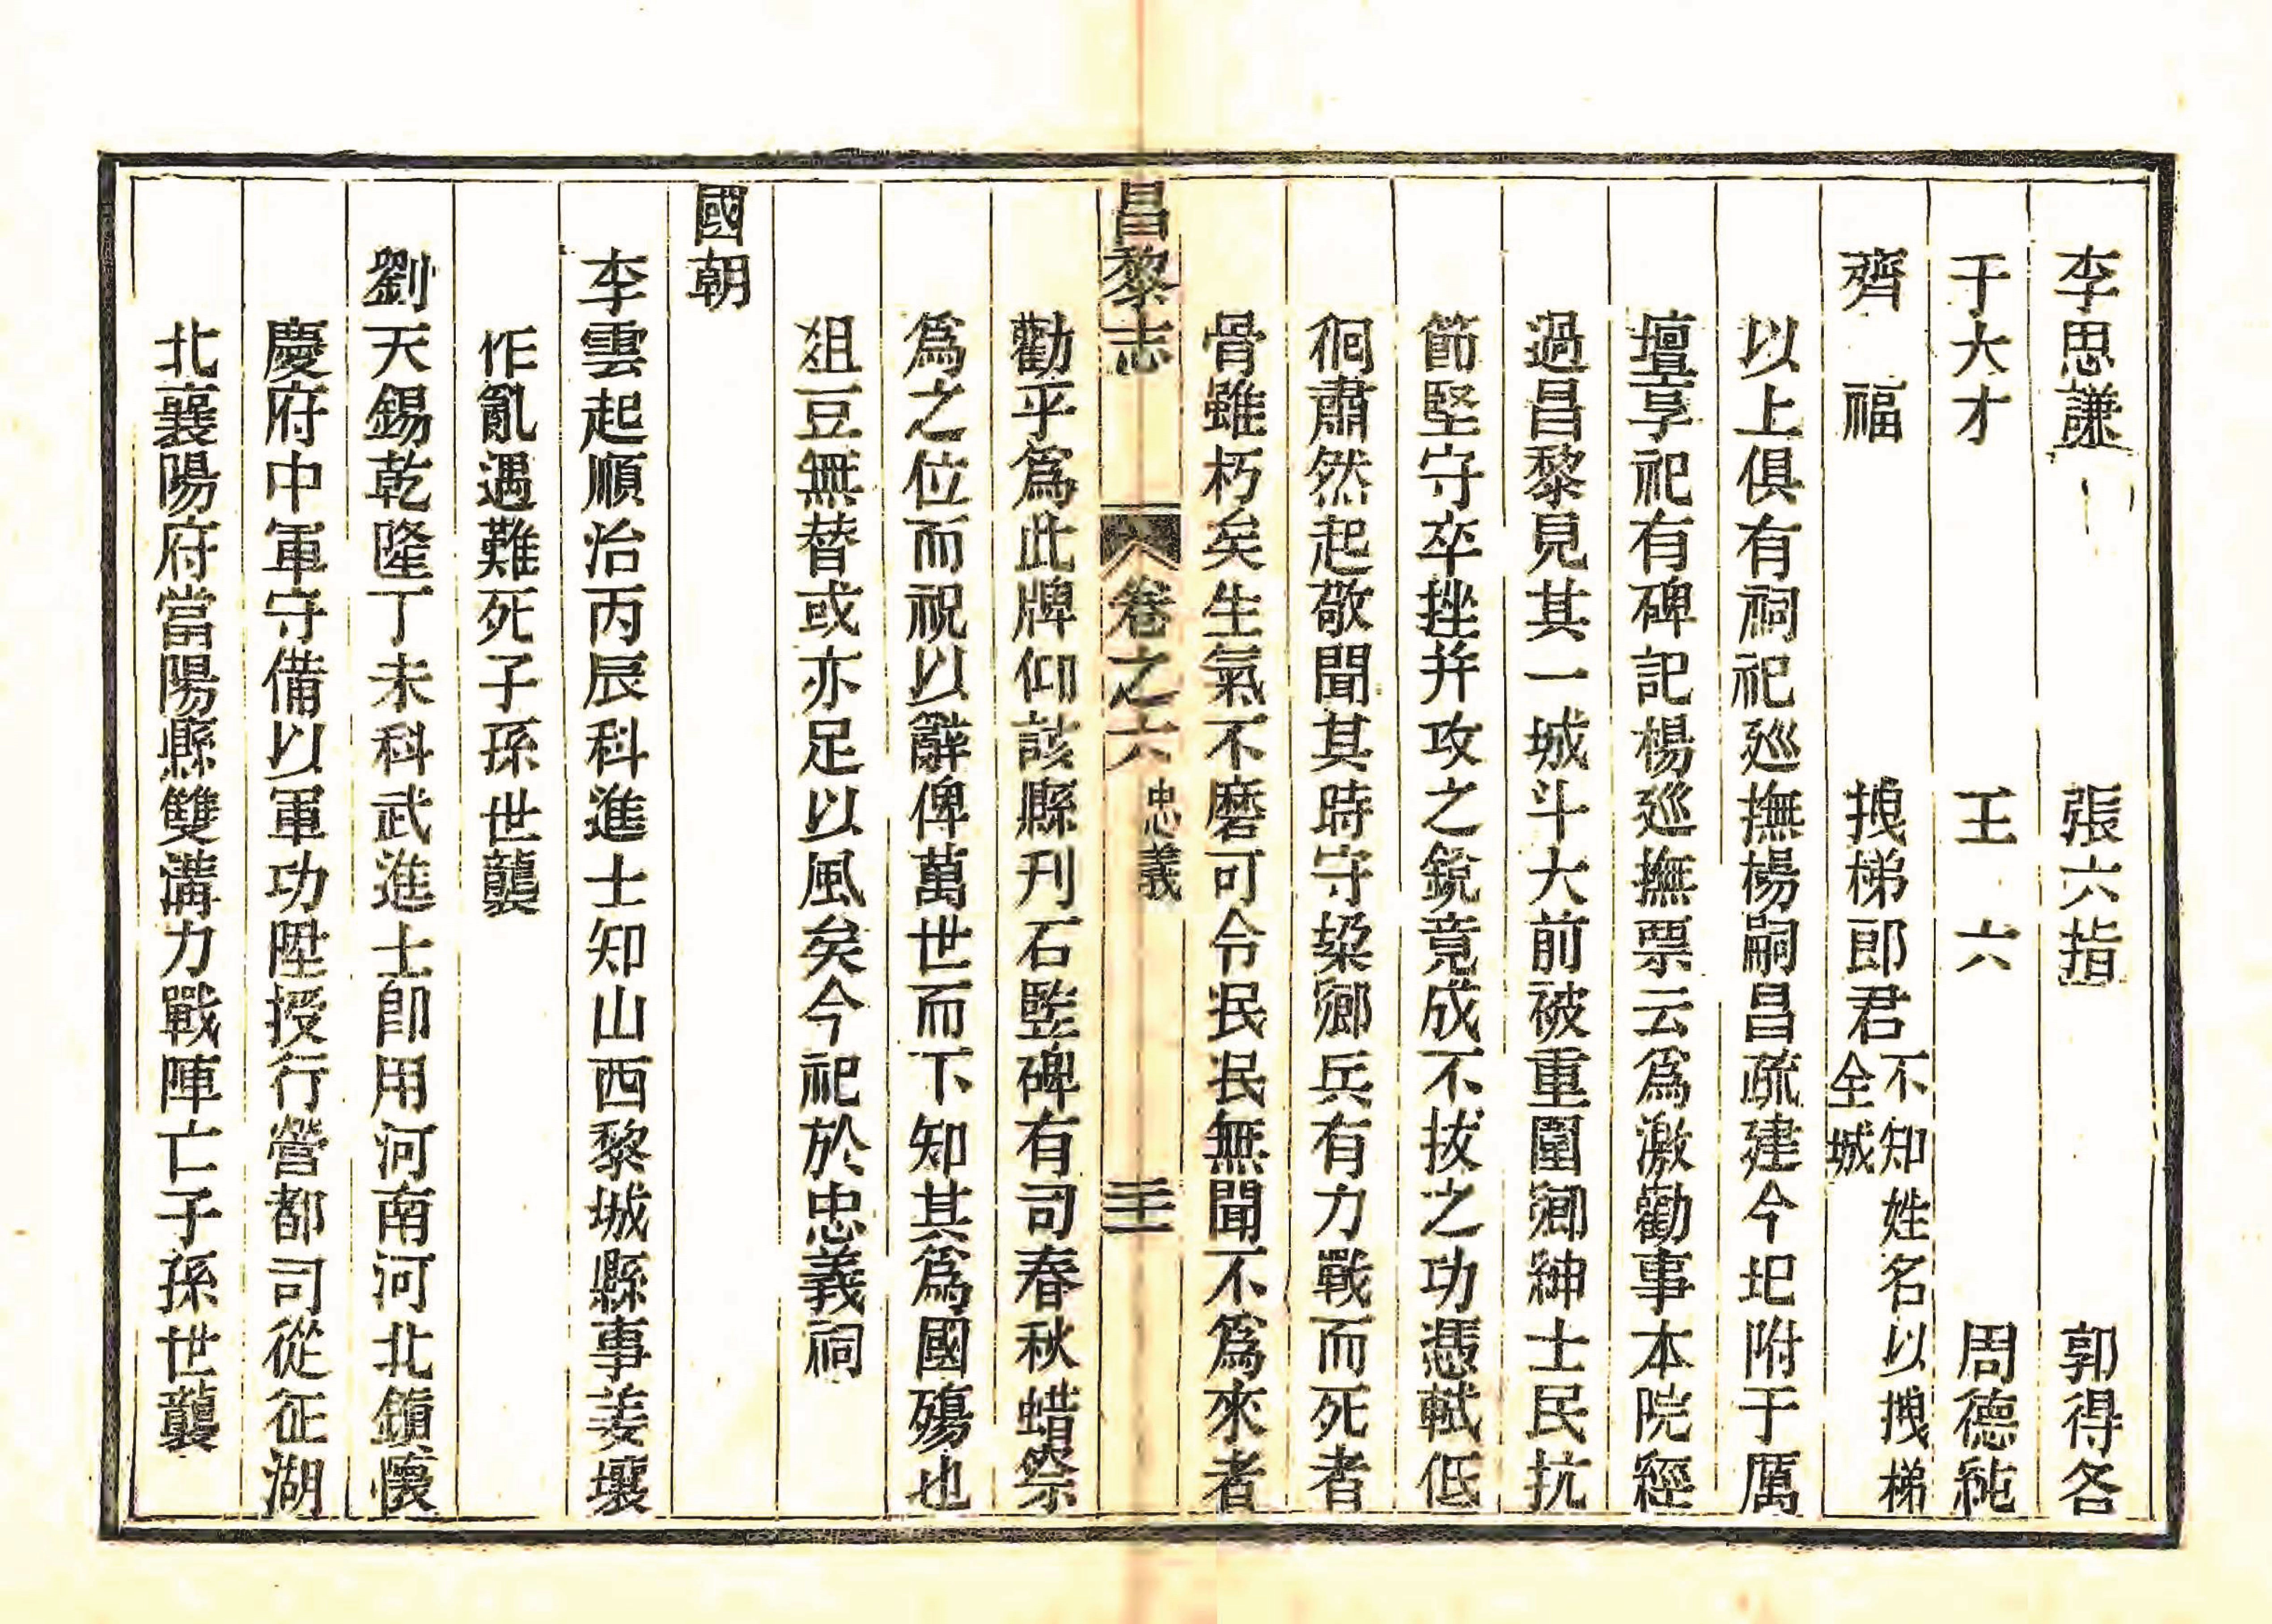 李思謙　張六指　郭得名
于大才　王　六　周德純
齊　福　拽梯郎君不知姓名以拽梯全城
以上俱有祠祀廵撫楊嗣昌疏建今圯附于厲
壇享祀有碑記楊廵撫票云爲激勸事本院經
過昌黎見其一城斗大前被重圍鄉紳士民抗
節堅守卒挫并攻之銳竟成不拔之功憑軾低
徊肅然起敬聞其時守梁鄉兵有力戰而死者
骨雖朽矣生氣不磨可令民民無聞不爲來者
昌黎志　卷之六　忠義　三十一
勸乎爲此牌仰該縣刊石竪碑有司春秋蜡祭
爲之位而祝以辭俾萬世而下知其爲國殤也
俎豆無替或亦足以風矣今祀於忠義祠
國朝
李雲起順治丙辰科進士知山西黎城縣事姜壤
作亂遇難死子孫世襲
劉天錫乾隆丁未科武進士卽用河南河北鎮懷
慶府中軍守備以軍功陞授行營都司從征湖
北襄陽府當陽縣雙溝力戰陣亡子孫世襲